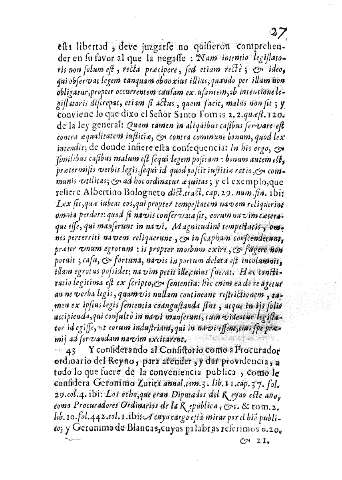 27
esta libertad, deve juzgarse no quisieron comprehen-
der en su favor al que la negasse: Nam intentio legislato-
ris non solum est, recta præcipere, sed etiam rectè; & ideo,
qui observat legem tanquam obnoxius illius, quando per illum non
obligatur, propter occurrentem causam excusantem, ab intentione le-
gislatoris discrepat, etiam si actus, quem facit, malus non sit; y
conviene lo que dixo el Señor Santo Tomás 2.2. quæst. 120.
de la ley general: Quem tamen in aliquibus casibus servare est
contra æqualitatem iustitiæ, & contra commune bonum, quod lex
intendit; de donde infiere esta consequencia: In his ergo, &
similibus casibus malum est sequi legem positam: bonum autem est,
prætermissis verbis legis, sequi id quod poscit iustitiæ ratio, & com-
munis utilitas; & ad hoc ordinatur æquitas; y el exemplo, que
refiere Albertino Bologneto dict. tract. cap. 29. num. fin. ibi:
Lex sit, quæ iubeat eos, qui propter tempestatem navem reliquerint
omnia perdere: quod si navis conservata sit, eorum navim cætera-
que esse, qui manserunt in navi. Magnitudine tempestatis, om-
nes perterriti navem reliquerunt, & in scapham conscenderunt,
præter unum ægrotum: is propter morbum exire, & fugere non
potuit; casu, & fortuna, navis in portum delata est incolumis,
illam ægrotus possidet: navim petit ille, cuius fuerat. Hæc
legitima est ex scripto, & sententia: hic enim ea de re agetur
an ne verba legis, quamvis nullam contineant restrictionem, ta-
men ex ipsius legis sententia coangustanda sint, ut in his solis
accipienda, qui consultò in navi manserunt, cum videatur legista-
tor id egisse, ut eorum industriam, qui in navi essent, eius spe præ-
mij ad servandam navim excitarent.
43 Y considerando al Consistorio como à Procurador
ordinario del Reyno, para atender, y dar providencia, à
todo lo que fuere de la conveniencia publica, como le
considera Geronimo Zurita annal. tom. 3. lib. 11. cap. 37. fol.
29. col. 4. ibi: Los ocho, que eran Diputados del Reyno este año,
como Procuradores Ordinarios de la República, &c. & tom. 2.
lib. 10. fol. 442. col. 1. ibi: A cuyo cargo está mirar por el bié publi-
co; y Geronimo de Blancas, cuyas palabras referimos n. 20.
& 21.